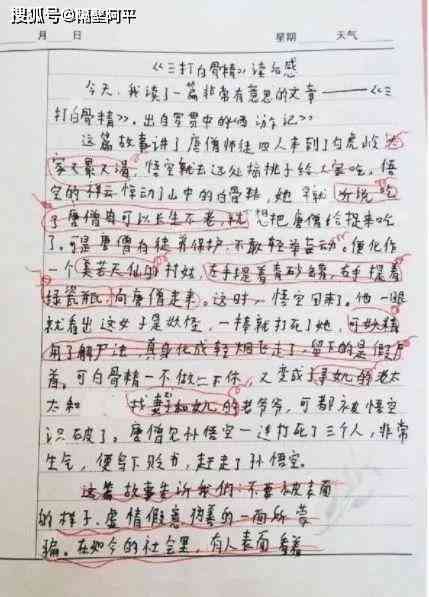 搜狐号@隔壁阿平
月 日 星期 天气
《三打白骨精》读后感
今天,我读了一篇非常有意思的文章——《三
打白骨精》。出自吴承恩的《西游记》
这篇故事讲了唐僧师徒四人来到了白虎岭
家又累又渴,悟空就去远处摘桃子给大家吃。悟
空的祥云惊动了山中的白骨精,她早就听说吃
了唐僧肉可以长生不老,就想把唐僧给捉来吃
了。可是唐僧有徒弟保护,不敢轻举妄动。便化作
一个美若天仙的村姑,左手提着青砂罐,右手提着
绿瓷瓶,向唐僧走来。这时,悟空回来了。他一眼
就看出这女子是妖怪,一棒就打死了她,可妖精
用了解尸法,真身化成轻烟飞走了,留下的是假尸
首。可白骨精一不做二不休,又变成了寻女儿的老太
太和 找妻子和女儿的老爷爷,可都被悟空
识破了。唐僧见孙悟空一连打死了三个人,非常
生气,便写下贬书,赶走了孙悟空。
这篇故事告诉我们:不要被表面
的样子、虚情假意伪善的一面所蒙
骗。在如今的社会里,有人表面看着